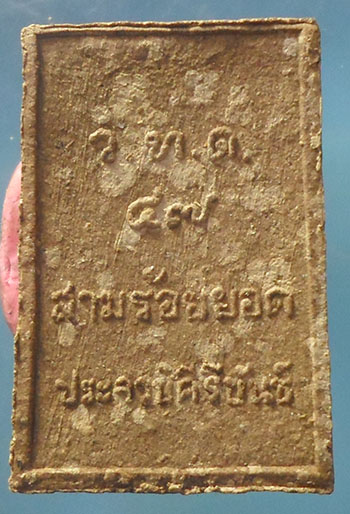 ว.ท.ด.
๔๗
สามร้อยยอด
ประจวบคิรีขันธ์